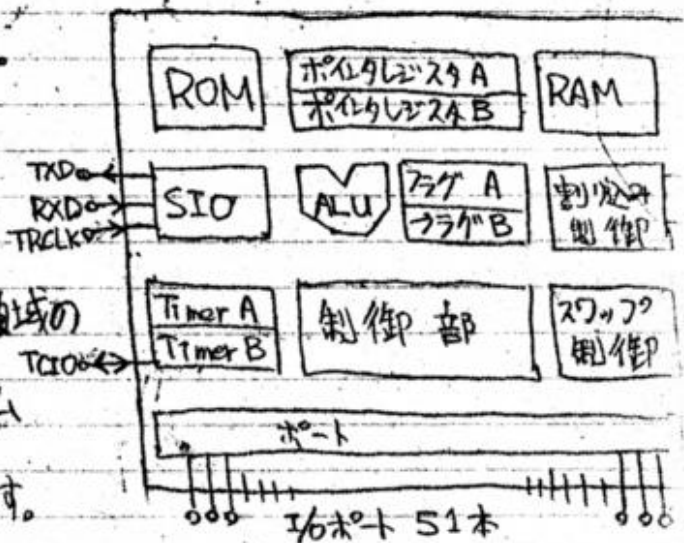 ROM
ポインタレジスタ A
ポインタレジスタ B
RAM
TXD
RXD
TRCLK
SIO
ALU
フラグ A
フラグ B
割り込み
制御
域の
Timer A
Timer B
TCIO
制御部
スワップ
制御
ポート
す。
I/Oポート 51本